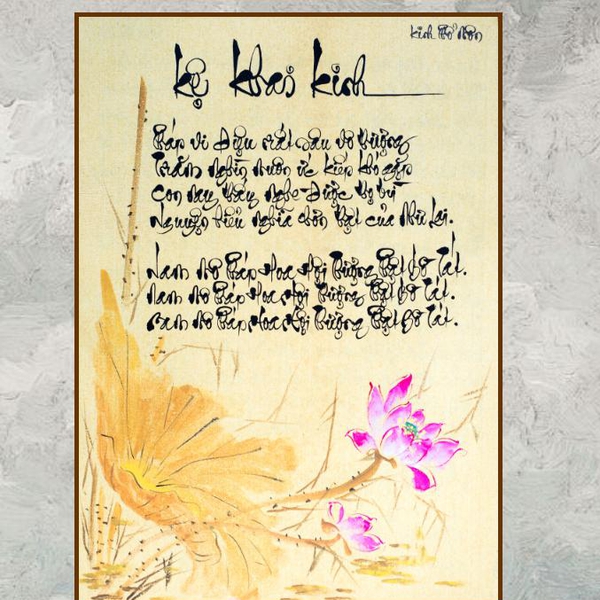 kinh Phổ Môn
kệ khai kinh
Pháp vi diệu rất sâu vô lượng
Trăm nghìn muôn ức kiếp khó gặp
Con nay thấy nghe được thọ trì
Nguyện hiểu nghĩa chơn thật của Như Lai.
Nam Mô Pháp Hoa Hội Thượng Phật Bồ Tát.
Nam Mô Pháp Hoa Hội Thượng Phật Bồ Tát.
Nam Mô Pháp Hoa Hội Thượng Phật Bồ Tát.